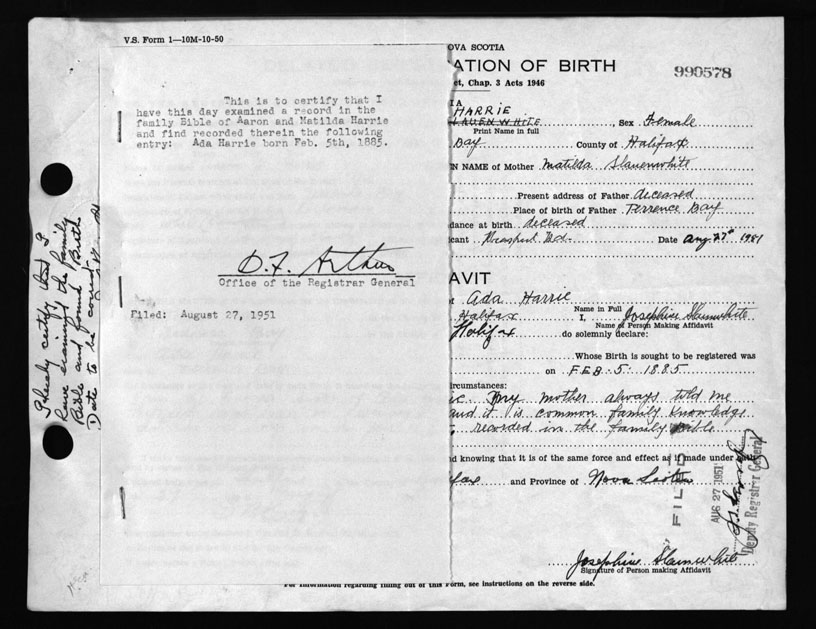 V.S. Form 1—10M-10-50
This is to certify that I
have this day examined a record in the
family Bible of Aaron and Matilda Harrie
and find recorded therein the following
entry: Ada Harrie born Feb. 5th, 1885.
D. F. Arthur
Office of the Registrar General
Filed: August 27, 1951
I hereby certify that I
have examined the family
Bible and found Birth
Date to be correct
OVA SCOTIA
ATION OF BIRTH
990578
ct, Chap. 3 Acts 1946
IA
HARRIE
, Sex Female
Print Name in full
Bay County of Halifax
N NAME of Mother Matilda Slauenwhite
Present address of Father deceased
Place of birth of Father Terrence Bay
dance at birth deceased
cant Date Aug 27th 1951
AVIT
Ada Harrie
Halifax I, Josephine Slaunwhite
Name in Full
Name of Person Making Affidavit
Halifax do solemnly declare:
Whose Birth is sought to be registered was
on FEB. 5. 1885
ircumstances:
My mother always told me
and it is common family knowledge
recorded in the family Bible
d knowing that it is of the same force and effect as if made under
fax and Province of Nova Scotia
FILED
AUG 27 1951
Deputy Registrar General
Josephine Slaunwhite
Signature of Person making Affidavit
For information regarding filling out of this Form, see instructions on the reverse side.